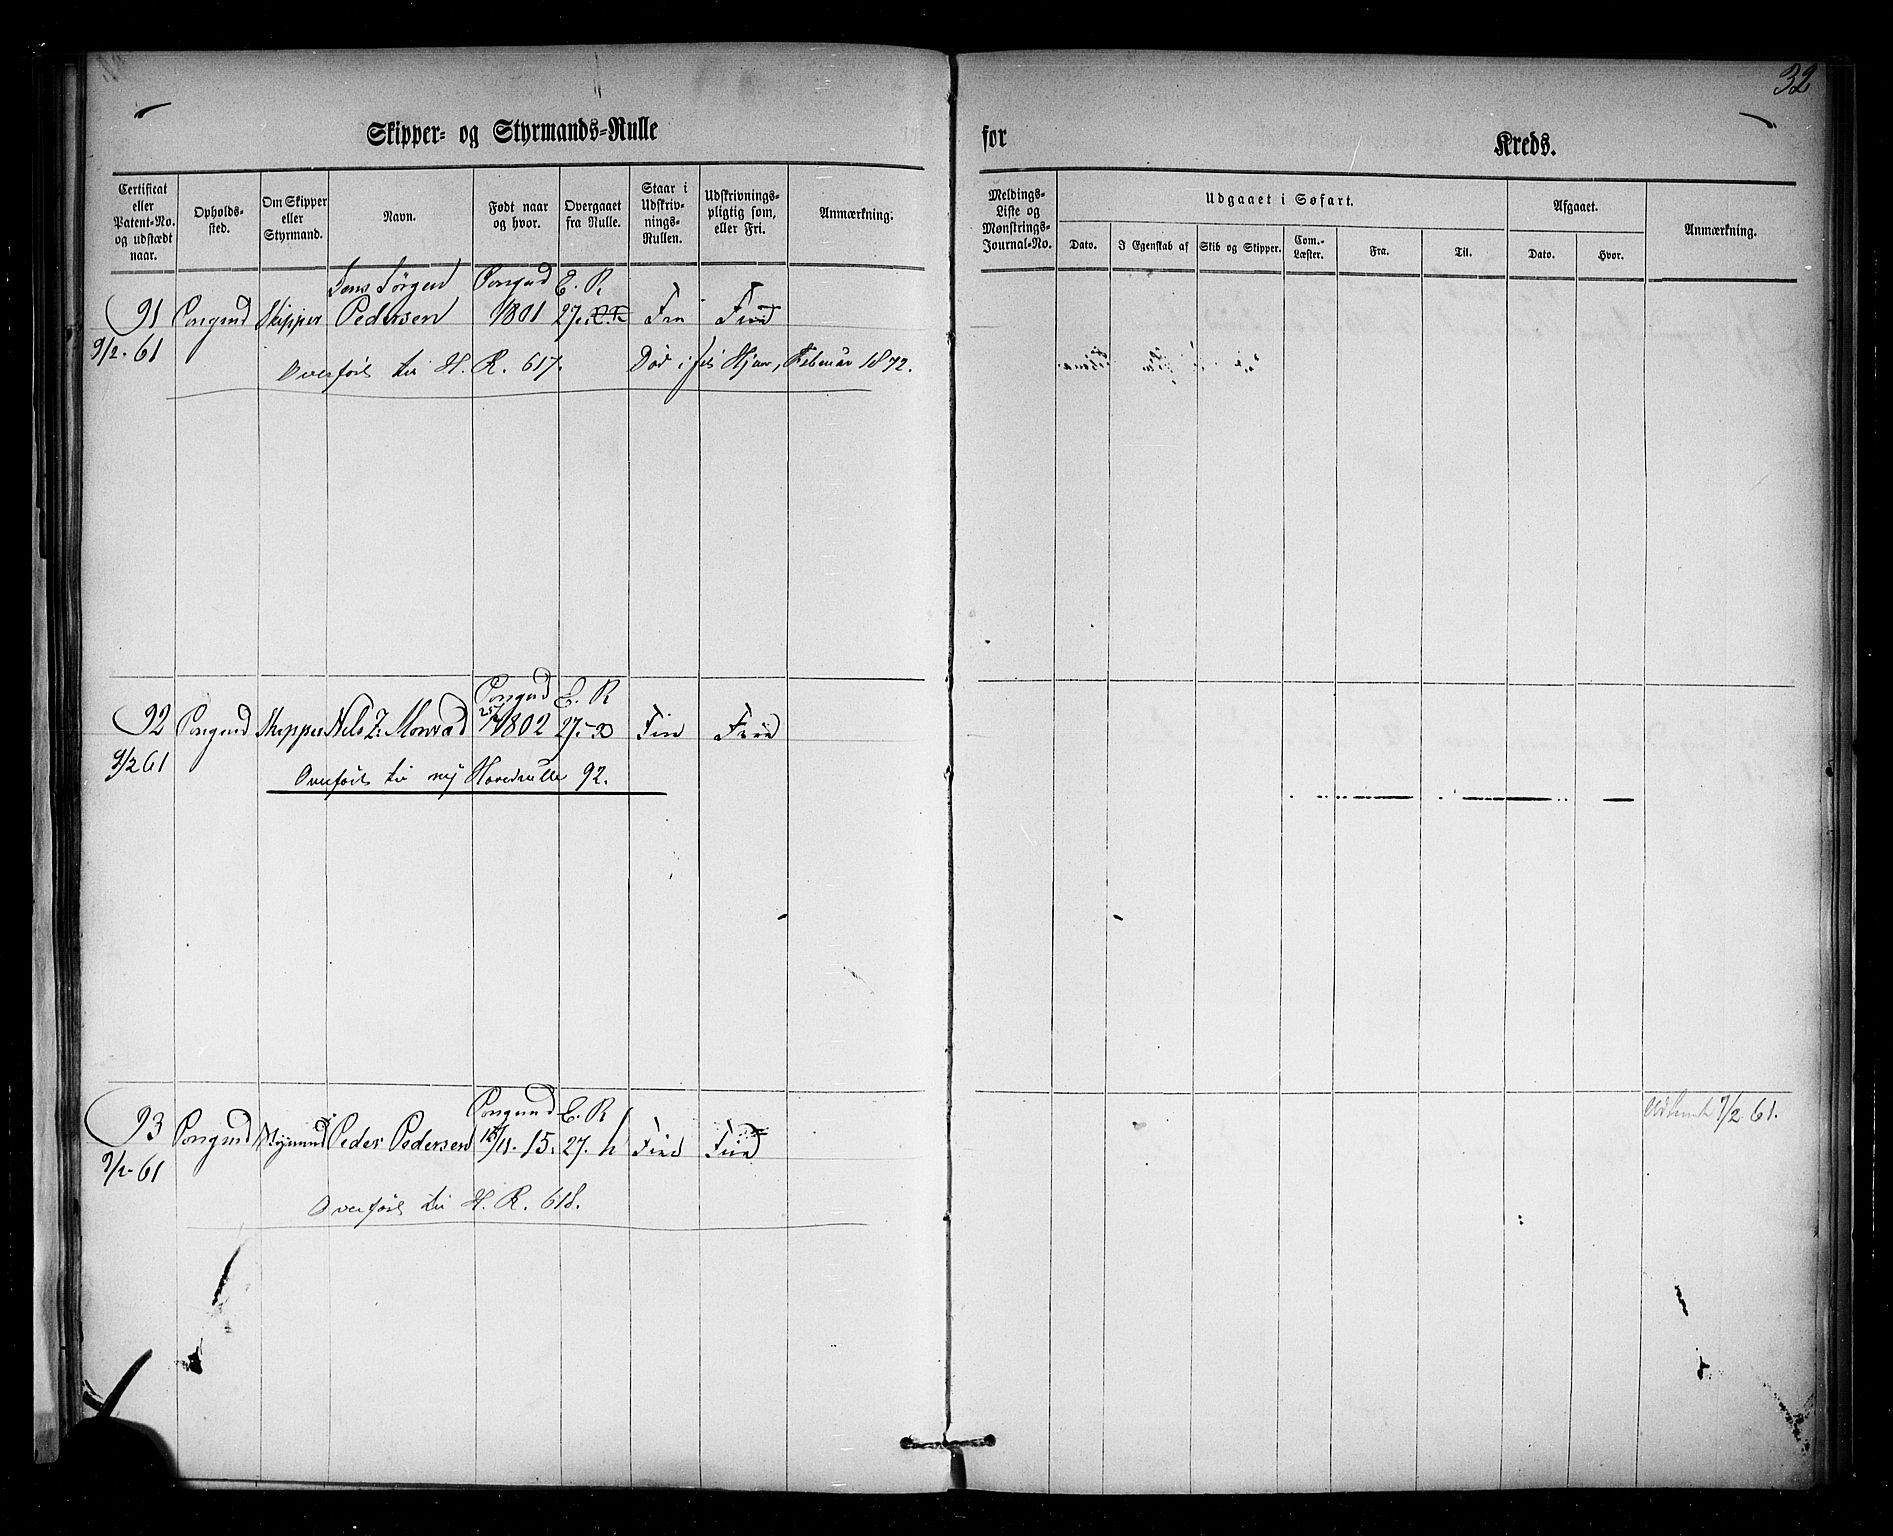 32
Skipper- og Styrmands-Rulle
for
Kreds.
Certificat eller Patent-No. og udstædt naar.
Opholds-sted.
Om Skipper eller Styrmand.
Navn.
Født naar og hvor.
Overgaaet fra Rulle.
Staar i Udskriv-nings-Rullen.
Udskrivnings-pligtig som, eller Fri.
Anmærkning.
Meldings-Liste og Mønstrings-Journal-No.
Udgaaet i Søfart.
Dato.
I Egenskab af
Skib og Skipper.
Com.-Læster.
Fra.
Til.
Afgaaet.
Dato.
Hvor.
Anmærkning.
Jens Jørgen Porsgrund E. R.
91 Porsgrund Skipper Pedersen 1801 27.
9/2 61 Overført til H. R. 617. Død i Februar 1872.
Porsgrund E. R
92 Porsgrund Skipper Nils Z. Monrad 1802 27.
9/2 61 Overført til ny Hovedrulle 92.
Porsgrund E. R
93 Porsgrund Styrmand Peder Pedersen 15. 27.
9/2 61
7/2 61.
Overført til H. R. 618.